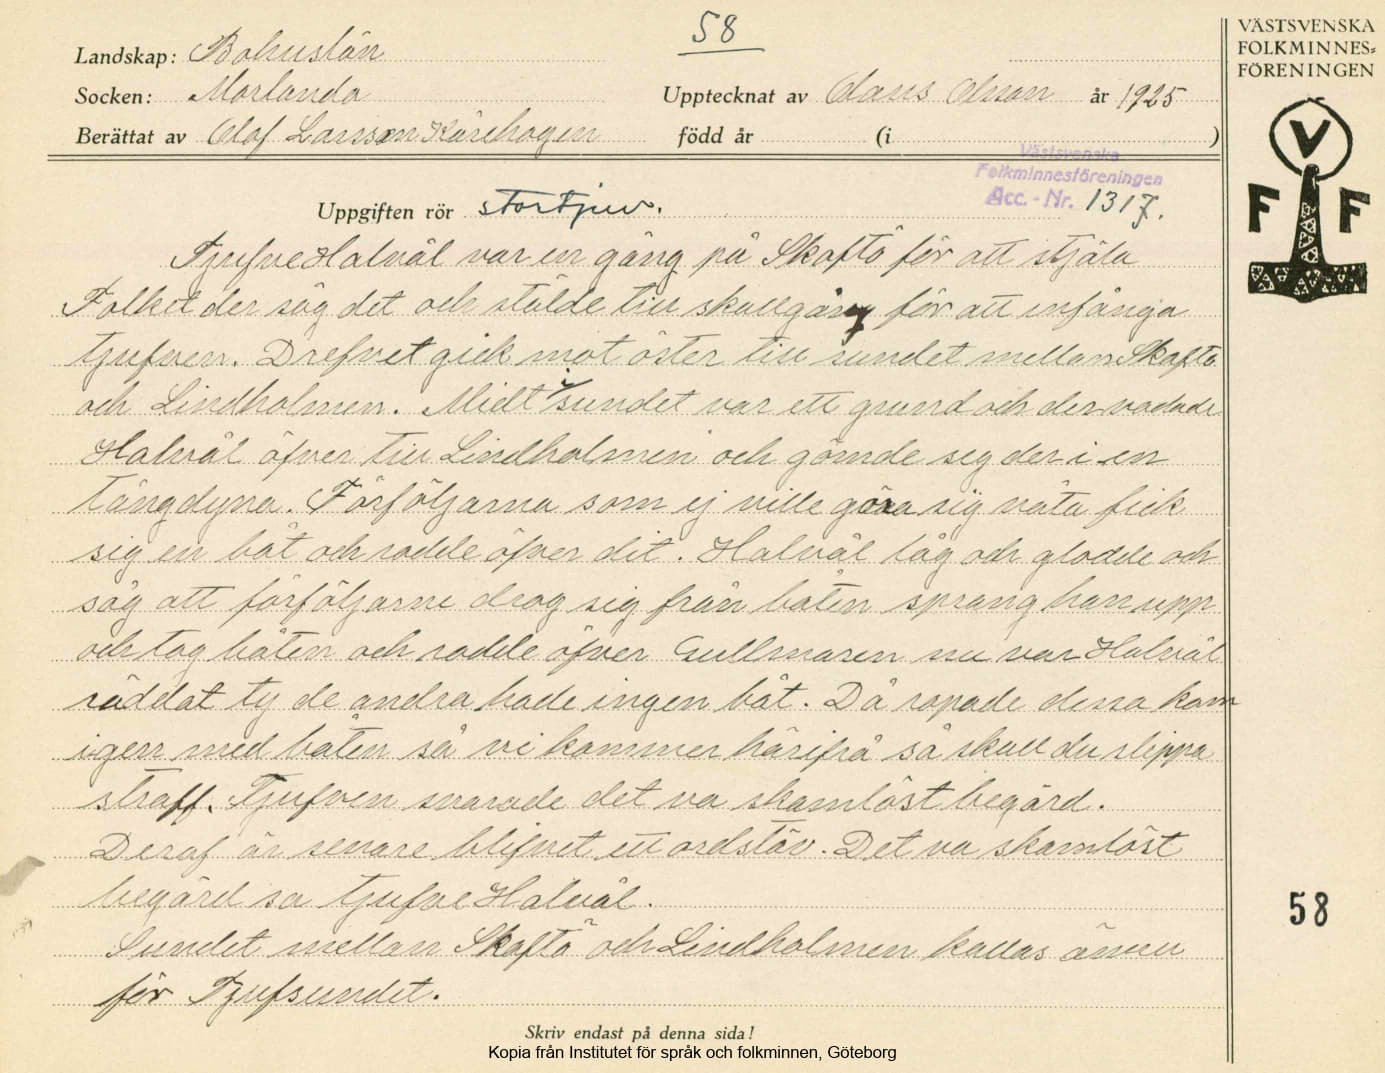 58
Landskap: Bohuslän
Socken: Morlanda
Upptecknat av Claus Olsson år 1925
Berättat av Olof Larsson Kårehogen född år (i )
VÄSTSVENSKA
FOLKMINNES=
FÖRENINGEN
V
F F
Västsvenska
Folkminnesföreningen
Acc.-Nr. 1317.
Uppgiften rör stortjuv.
Tjufve Halvål var en gång på Skaftö för att stjäla
Folket der såg det och stälde till skallgång för att infånga
tjufven. Drefvet gick mot öster till sundet mellan Skaftö
och Lindholmen. Midt i sundet var ett grund och der vadade
Halvål öfver till Lindholmen och gömde sig der i en
tångdyna. Förföljarna som ej ville göra sig våta fick
sig en båt och rodde öfver dit. Halvål låg och glodde och
såg att förföljarne drog sig från båten sprang han upp
och tog båten och rodde öfver Gullmaren nu var Halvål
räddat ty de andra hade ingen båt. Då ropade dessa kom
igen med båten så vi kommer härifrå så skall du slippa
straff. Tjufven svarade det va skamlöst begärd.
Deraf är senare blifvet ett ordstäv. Det va skamlöst
begärd sa tjufve Halvål.
Sundet mellan Skaftö och Lindholmen kallas även
för Tjufsundet.
58
Skriv endast på denna sida!
Kopia från Institutet för språk och folkminnen, Göteborg